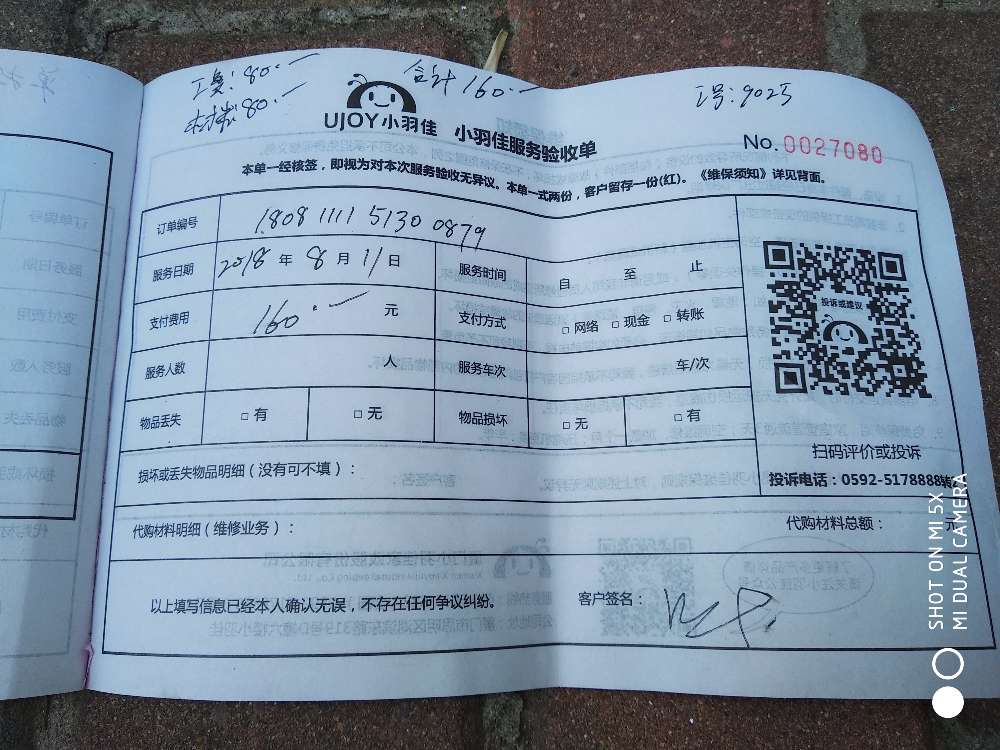 工费:80.
材料:80.
合计160.
工号:9025
UJOY小羽佳 小羽佳服务验收单
No.0027080
本单一经核签，即视为对本次服务验收无异议。本单一式两份，客户留存一份(红)。《维保须知》详见背面。
订单编号 1808 1111 5130 0879
服务日期 2018 年 8 月 11 日 服务时间 自 至 止
支付费用 160. 元 支付方式 □ 网络 □ 现金 □ 转账
服务人数 人 服务车次 车/次
物品丢失 □ 有 □ 无 物品损坏 □ 无 □ 有
投诉或建议
扫码评价或投诉
投诉电话：0592-5178888转
损坏或丢失物品明细（没有可不填）：
代购材料明细（维修业务）：
代购材料总额： 元
以上填写信息已经本人确认无误，不存在任何争议纠纷。
客户签名：
SHOT ON MI 5X
MI DUAL CAMERA